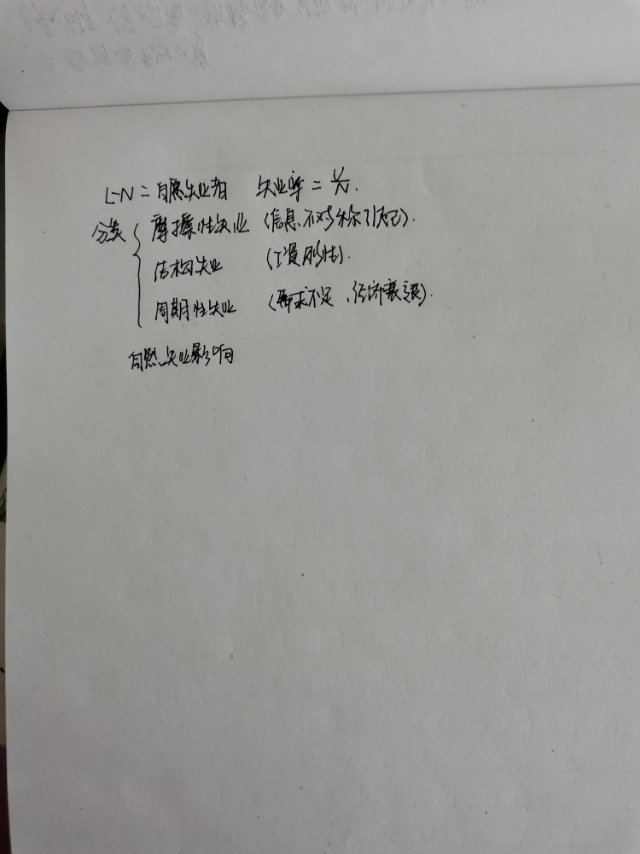 L-N = 自然失业者 失业率 = U/N.
分类 { 摩擦性失业 (信息不对称引起).
结构失业 (工资刚性).
周期性失业 (需求不足、经济衰退).
自然失业影响